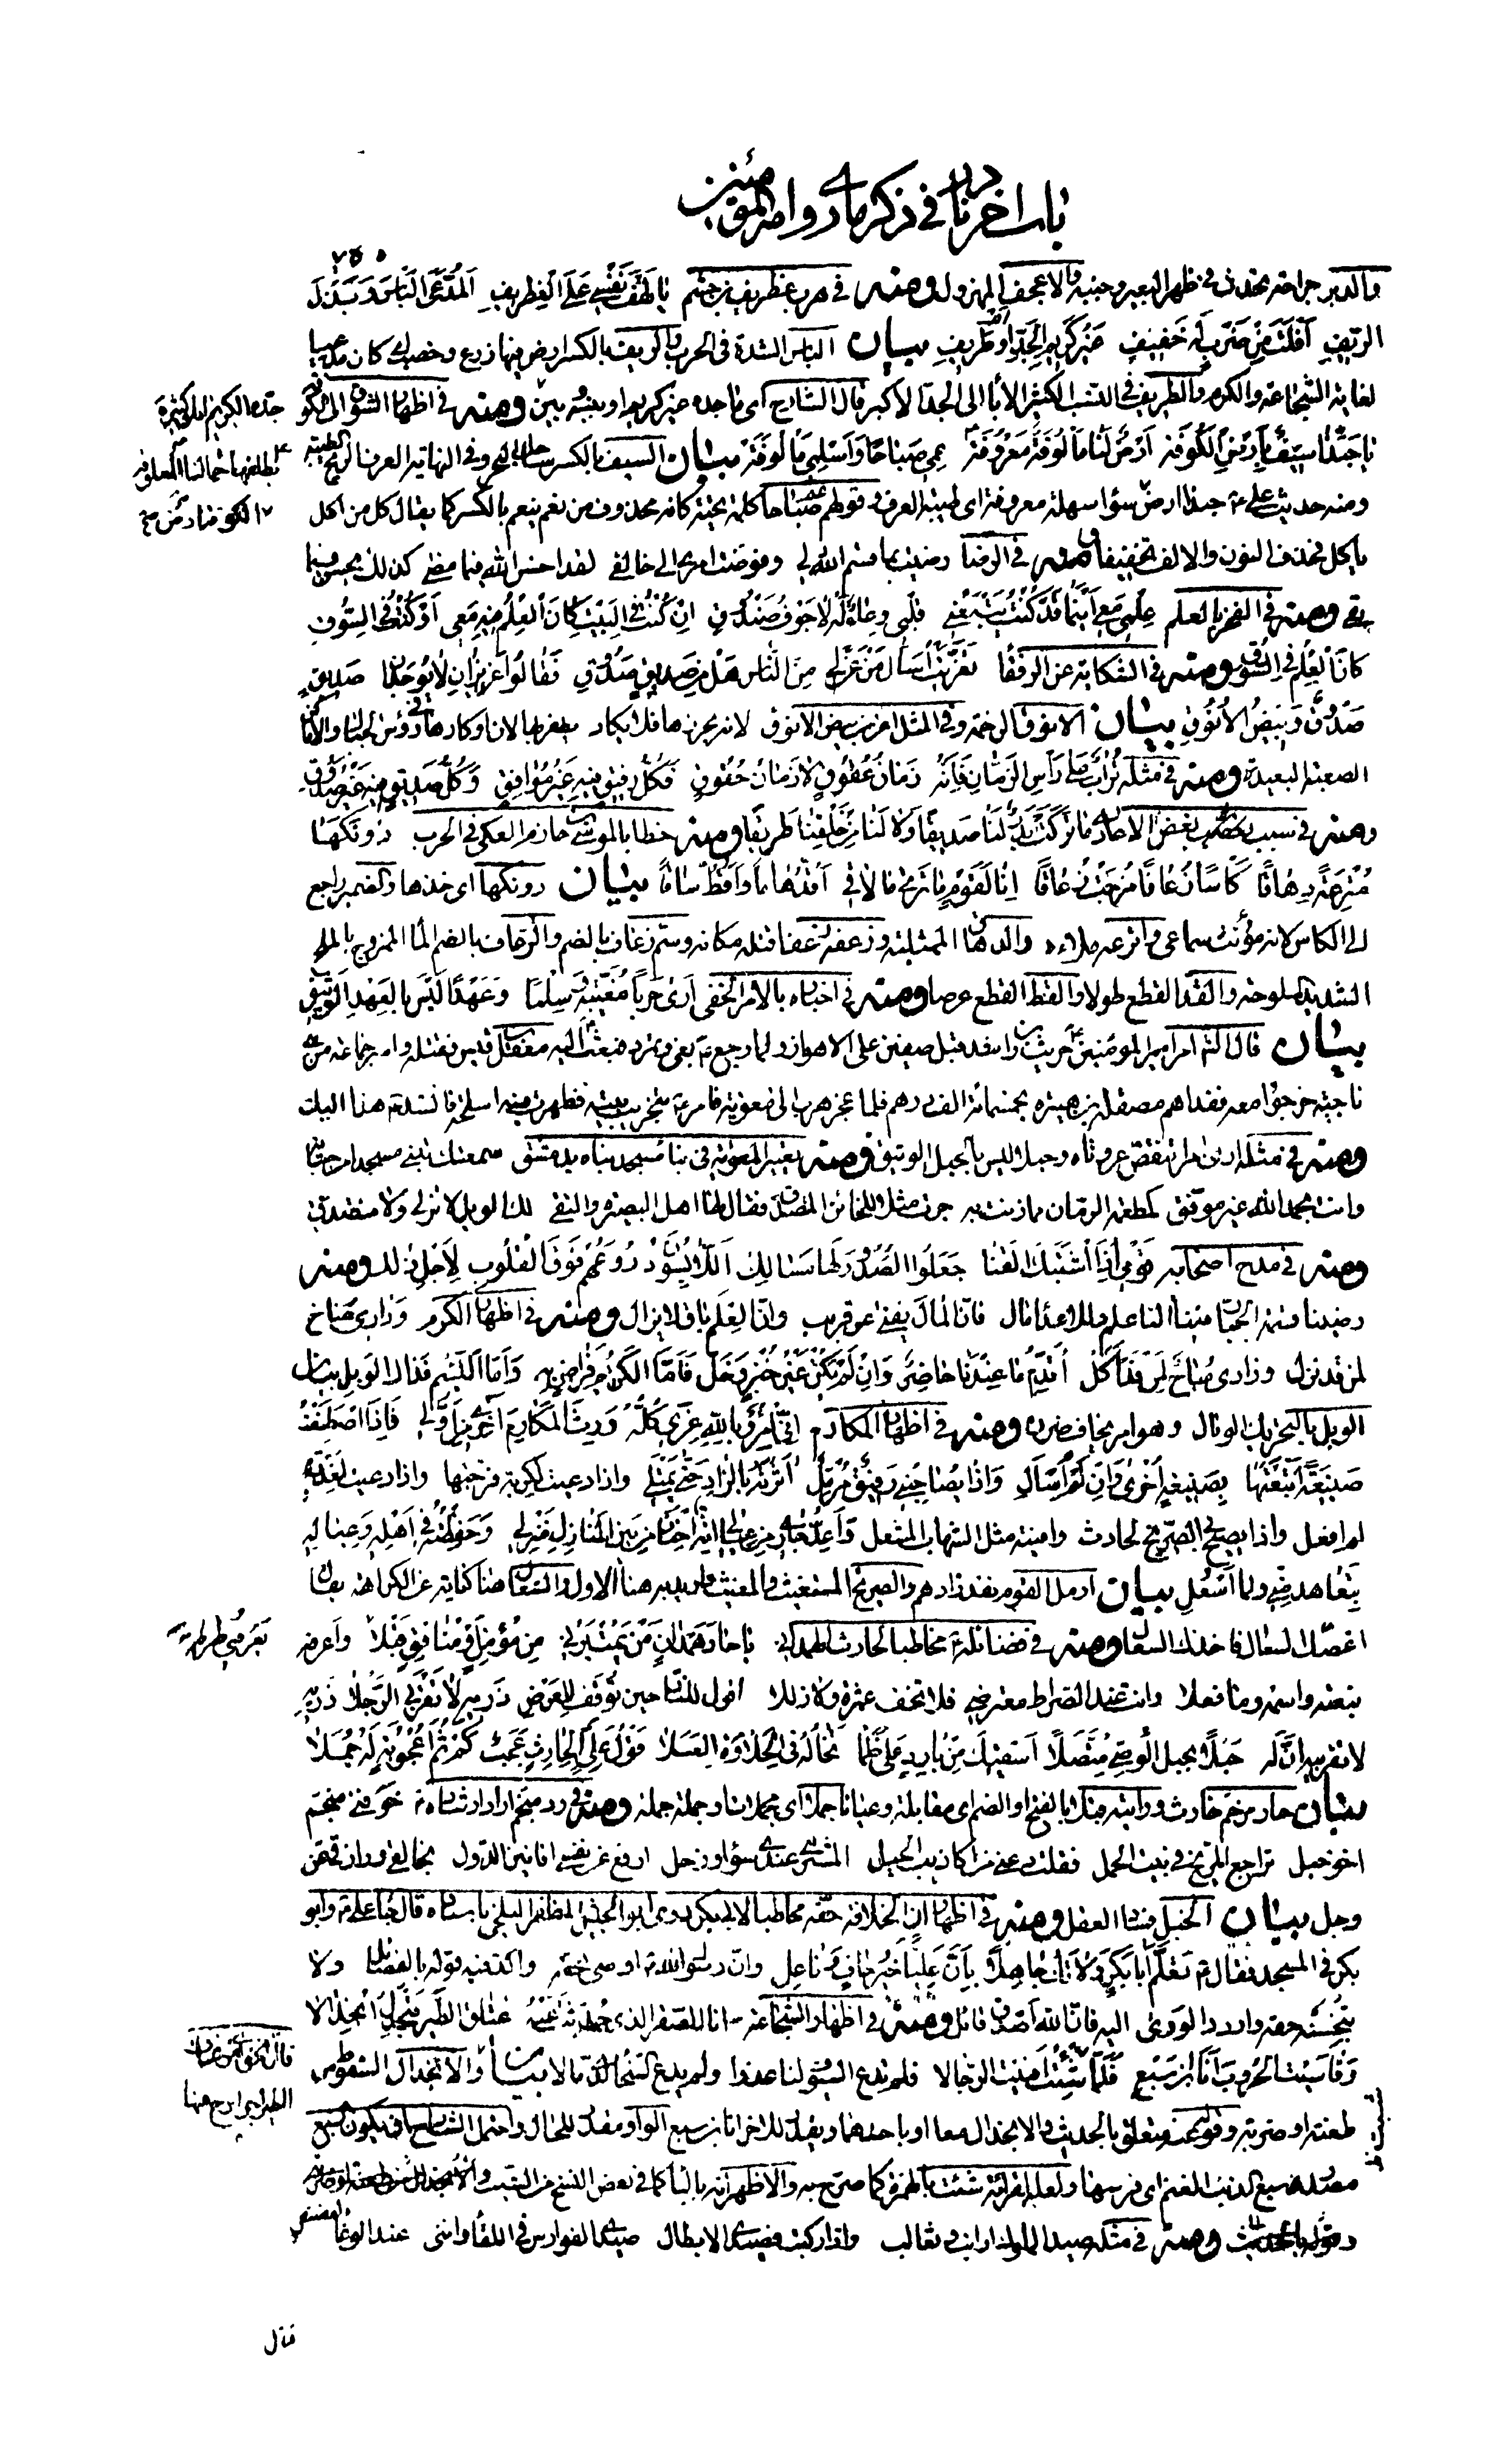 باب اخر نادر في ذكر ما روا امير المؤمنين
٧٤٥
والدبر جراحة تحدث في ظهر البعير وجنبه والاعجف المهزول ومنه في هرب غطريف بن جشم يا لهف نفسي على الغطريف المدعي الباس وبذل
الرغيف افلت من ضرب له خفيف غير كريم الجد او ظريف بيان الباس الشدة في الحرب والريف بالكسر ارض فيها زرع وخصب اي كان مدعيا
لغاية الشجاعة والكرم والطريف في النسب الكثير الآباء الى الجد الاكبر قال الشارح اي ما جده غير كريم او بنيه بين ومنه في اظهار الشوق الى الكوفة
يا حبذا سيف بارض الكوفة ارض لنا مالوفة معروفة عمي صباحا واسلمي مالوفة بيان السيف بالكسر ساحل البحر وفي النهاية العرف الريح الطيبة
ومنه حديث علي ع حبذا ارض سواء سهلة معروفة اي طيبة العرف وقولهم عم صباحا كلمة تحية كانه محذوف من نعم ينعم بالكسر كما يقال كل من اكل
ياكل فحذف النون والالف تخفيفا ومنه في الرضا رضيت بما قسم الله لي وفوضت امري الى خالقي لقد احسن الله فيما مضى كذلك يحسن فيما
بقي ومنه في الفخر بالعلم علمي معي اينما قد كنت يتبعني قلبي وعاء له لا جوف صندوق ان كنت في البيت كان العلم فيه معي او كنت في السوق
كان العلم في السوق ومنه في الشكاية عن الرفقا تغربت اسال من عن لي من الناس هل من صديق صدوق فقالوا عزيزان لا يوجدان صديق
صدوق وبيض الانوق بيان الانوق الرخمة وفي المثل اعز من بيض الانوق لانه يحرزها فلا يكاد يظفر بها لان اوكارها في رؤس الجبال والاماكن
الصعبة البعيدة ومنه في مثله تراب على راس الزمان فانه زمان عقوق لا زمان حقوق فكل رفيق فيه غير موافق وكل صديق فيه غير صدوق
ومنه في نسب بعض الاحاد ما تركت بدر لنا صديقا ولا لنا من خلفنا طريقا ومنه خطابا لموسى بن حازم العكي في الحرب دونكها
مترعة دهاقا كاسا زعافا مزجت زعاقا انا لقوم ما نرى ما لاقى اقد هاما واقط ساقا بيان دونكها اي خذها والضمير راجع
الى الكاس لانه مؤنث سماعي واترعه ملاءه والدهاق الممتلية وزعفه زعفا قتله مكانه وسم زعاف بالضم والزعاق بالضم الماء الممزوج بالملح
الشديد الملوحة والقد القطع طولا والقط القطع عرضا ومنه في اخباره بالامر الخفي ارى حربا مغيبة وسلما وعهدا ليس بالعهد الوثيق
بيان قال الشارح امر امير المؤمنين ع حريث بن راشد قبل صفين على الاهواز ولما رجع ع بغى وتمرد فبعث اليه معقل بن قيس فقتله واسر جماعة من بني
ناجية خرجوا معه ففداهم مصقلة بن هبيرة بخمسمائة الف درهم فلما عجز هرب الى معوية فامر ع بتخريب بيته فظهرت فيه اسلحة فانشد ع هذا البيت
ومنه في مثله ارى امرا تنقض عروتاه وحبلا ليس بالحبل الوثيق ومنه يعير المعوية في بناء مسجد بناه بدمشق سمعتك تبني مسجدا من جباية
وانت بحمد الله غير موفق كمطعمة الرمان مما زنت به جرت مثلا للخائن المتصدق فقال لها اهل البصيرة والتقى لك الويل لا تزني ولا تتصدقي
ومنه في مدح اصحابه قومي اذا اشتبك القنا جعلوا الصدور لها مسالك اللابسون دروعهم فوق القلوب لاجل ذلك ومنه
رضينا قسمة الجبار فينا لنا علم وللاعداء مال فان المال يفنى عن قريب وان العلم باق لا يزال ومنه في اظهار الكرم وداري مناخ
لمن قد نزل وزادي مباح لمن قد اكل اقدم ما عندنا حاضر وان لم يكن غير خبز وخل فاما الكريم فراض به واما اللئيم فذاك الوبل بيان
الوبل بالتحريك الوبال وهو امر يخاف ضرره ومنه في اظهار المكارم اني امرؤ بالله عزي كله ورث المكارم اخري من اولي فاذا اصطنعت
صنيعة اتبعتها بصنيعة اخرى وان لم اسأل واذا يصاحبني رفيق مرمل اثرته بالزاد حتى يمتلي واذا دعيت لكربة فرجتها واذا دعيت لغدرة
لم افعل واذا يصيح بي الصريخ لحادث وافيته مثل الشهاب المشعل واعد جاري من عيالي انه اختار من بين المنازل منزلي وحفظته في اهله وعياله
بتعاهد مني ولما اسعل بيان ارمل القوم نفد زادهم والصريخ المستغيث والمغيث والمراد به هنا الاول والسعال هنا كناية عن الكراهة يقال
اغصك السؤال فاخذك السعال ومنه في فضائله ع مخاطبا لحارث الهمداني يا حار همدان من يمت يرني من مؤمن او منافق قبلا واعرفه
بنعته واسمه وما فعلا وانت عند الصراط معترضي فلا تخف عثرة ولا زللا اقول للنار حين توقف للعرض ذريه لا تقربي الرجلا ذريه
لا تقربيه ان له حبلا بحبل الوصي متصلا اسقيك من بارد على ظما تخاله في الحلاوة العسلا قول علي لحارث عجب كم ثم اعجوبة له جملا
بيان حار مرخم حارث ورايته قبلا بالفتح او الضم اي مقابلة وعيانا جملا اي مجملات او جملة جملة ومنه في رد منجم اراد ارشاده خوفني منجم
اخو خبل تراجع المريخ في بيت الحمل فقلت دعني من اكاذيب الحيل المشتري عندي سواء وزحل ادفع عن نفسي افانين الدول بخالقي ورازقي عز
وجل بيان الخبل فساد العقل ومنه في اظهار ان الخلافة حقه مخاطبا لابي بكر روى ابو الجيش المظفر البلخي باسناده قال جاء علي ع وابو
بكر في المسجد فقال ع تعلم ابا بكر ولا تك جاهلا بان عليا خير حاف وناعل وان رسول الله ص اوصى بحقه واكد فيه قوله بالفضائل ولا
تبخسنه حقه واردد الورى اليه فان الله اصدق قائل ومنه في اظهار الشجاعة انا الصقر الذي حدثت عنه عتاق الطير تنجدل انجدالا
وقاسيت الحروب انا ابن سبع فلما شبت افنيت الرجالا فلم تدع السيوف لنا عدوا ولم يدع السخاء لدي مالا بيان الانجدال السقوط من
طعنة او ضربة وقوله عنه متعلق بالحديث والانجدال معا او باحدهما ويقدر للاخر انا ابن سبع الواو مقدر للحال واحتمل الشارح ان يكون سبع
مصدر سبع الذئب الغنم اي فرسها ولعله لقراءته شئت بالهمزة كما صرح به والاظهر انه بالباء كما في بعض النسخ من الشيب
ومنه في مثله صيد الملوك ارانب وثعالب واذا ركبت فصيدي الابطال صيدي الفوارس في اللقاء وانني عند الوغا
فقال